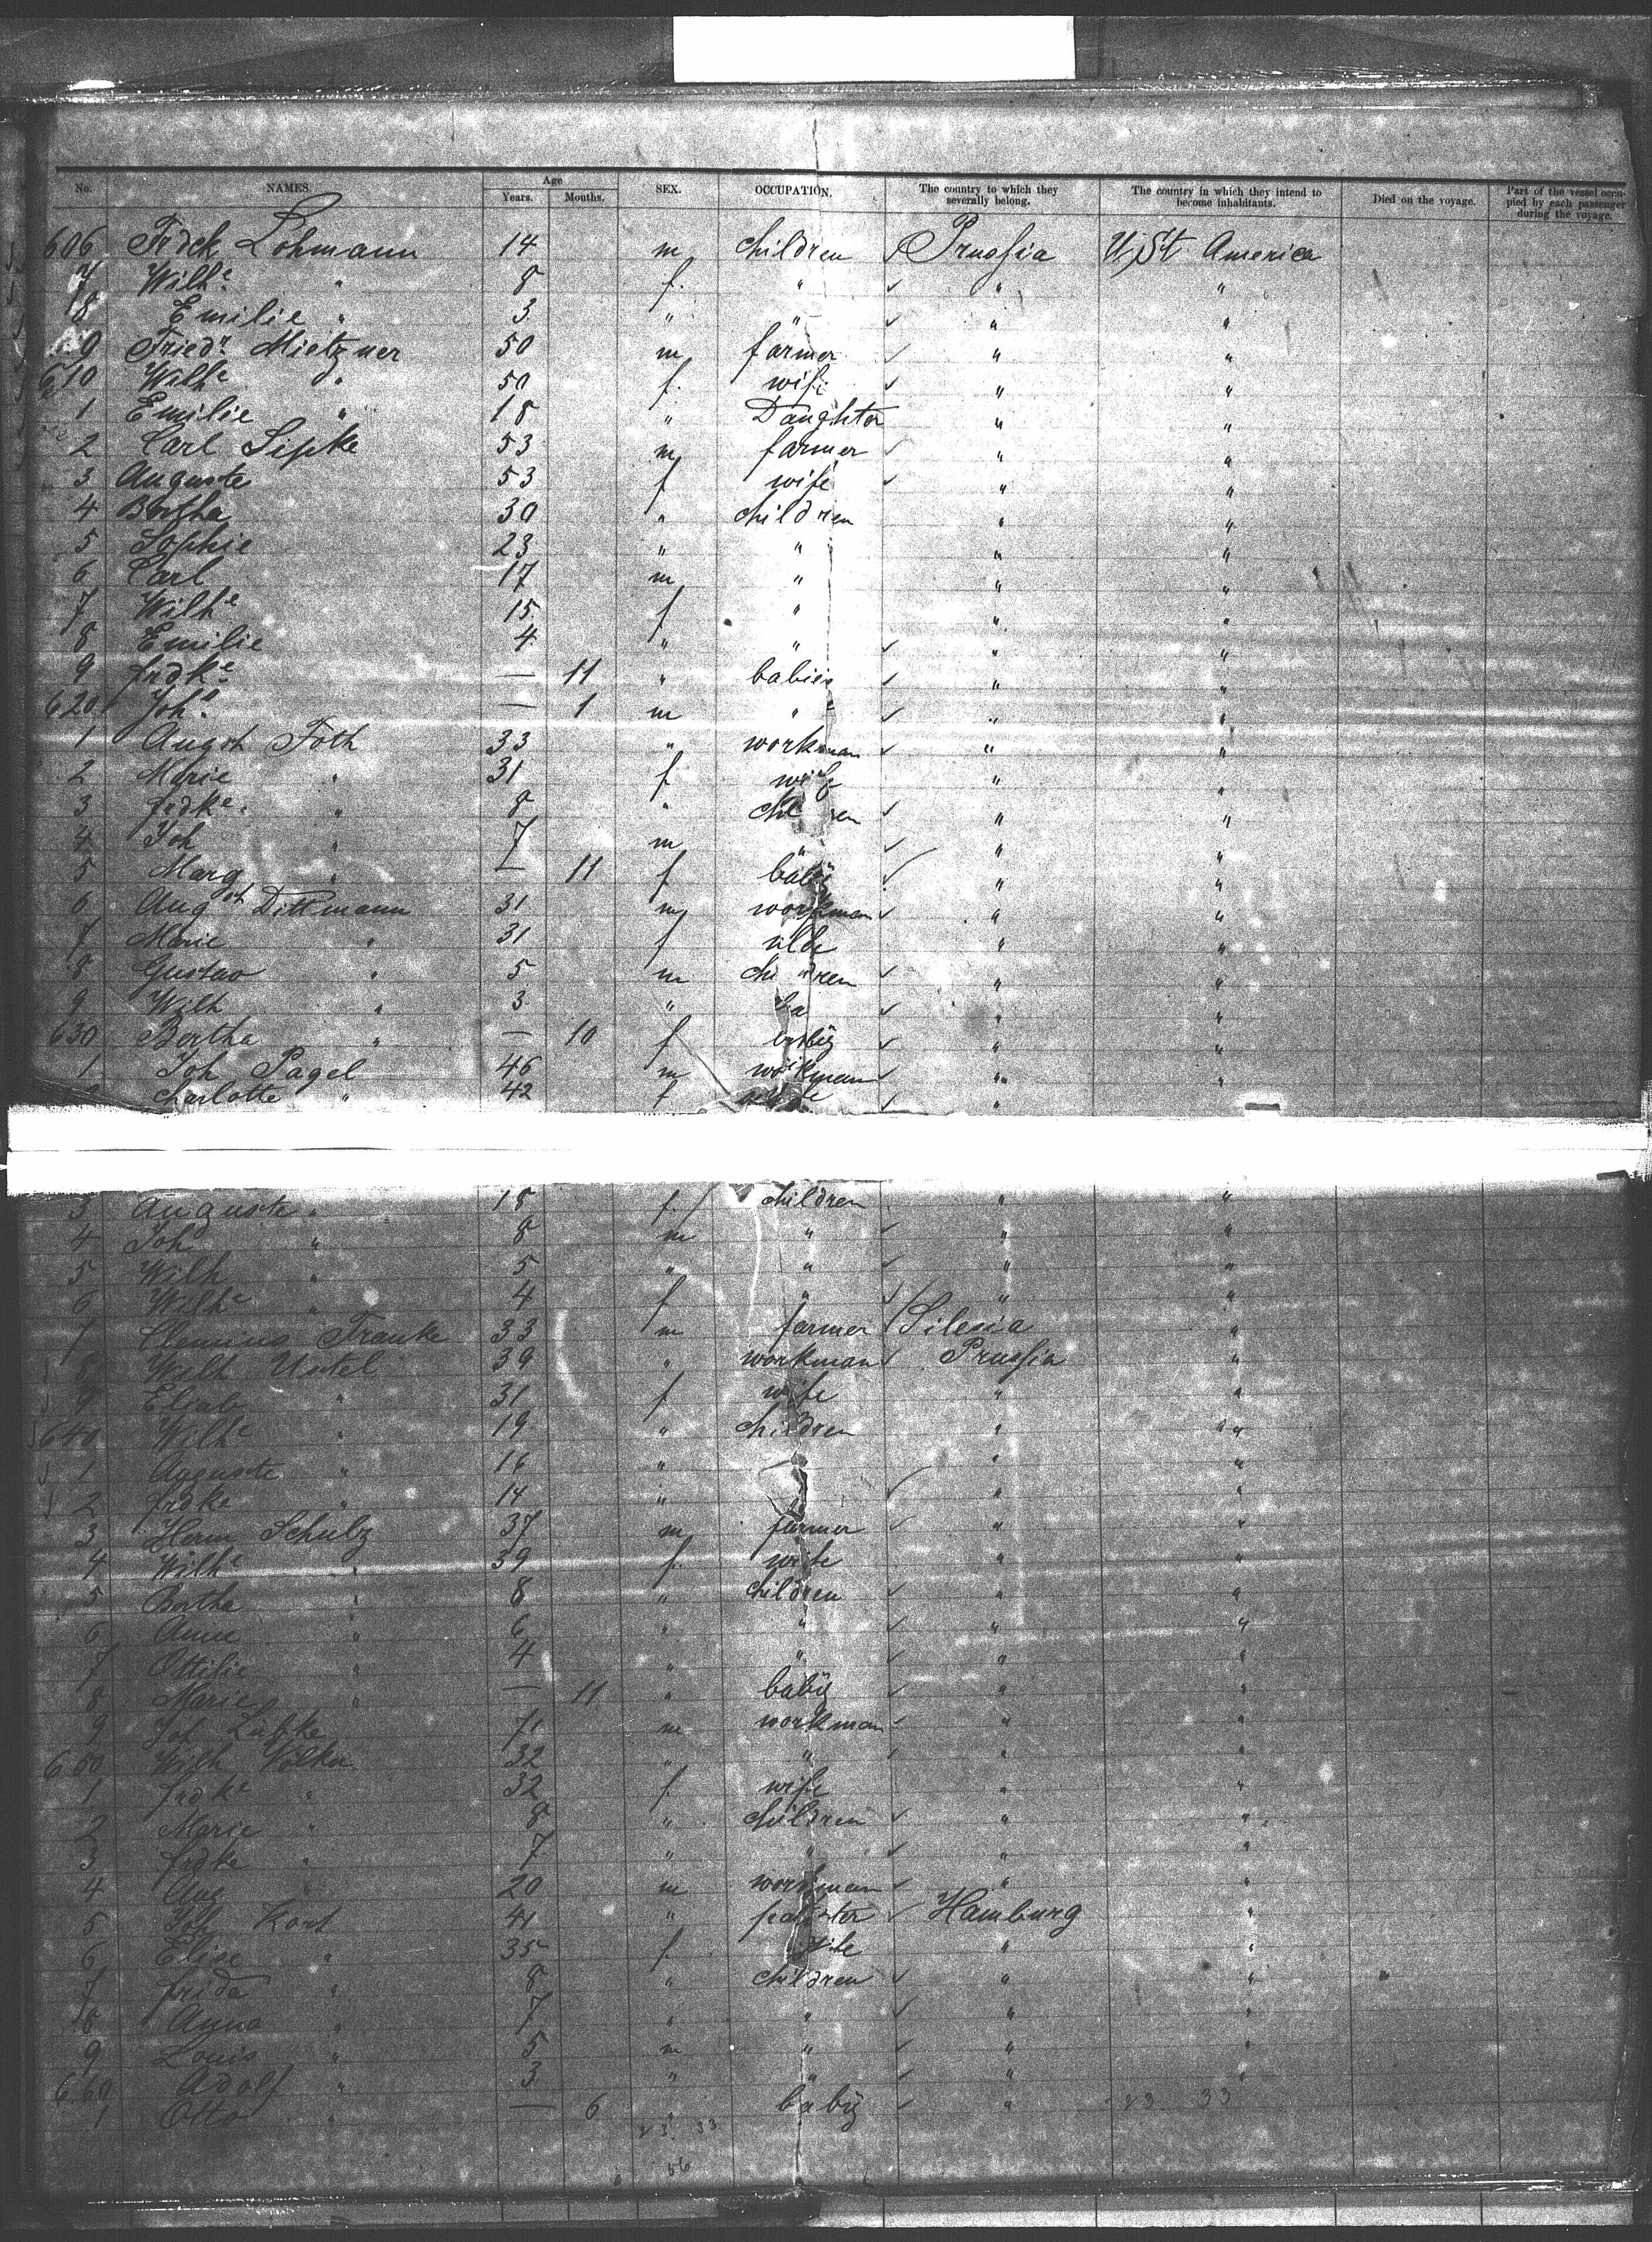 No. NAMES. Age Years. Months. SEX. OCCUPATION. The country to which they severally belong. The country in which they intend to become inhabitants. Died on the voyage. Part of the vessel occupied by each passenger during the voyage.
606 Frdck Lohmann 14 m children Prussia U, St America
7 Wilhe " 8 f. " " "
8 Emilie " 3 " " " "
9 Friedr. Mietzner 50 m farmer " "
610 Wilhe " 50 f. wife " "
1 Emilie " 18 " Daughter " "
2 Carl Lipke 53 m farmer " "
3 Auguste 53 f wife " "
4 Bertha 30 " children " "
5 Sophie 23 " " " "
6 Carl 17 m " " "
7 Wilhe 15 f " " "
8 Emilie 4 " " " "
9 frdke — 11 " babies " "
620 Joh. — 1 m " " "
1 Augst Foth 33 " workman " "
2 Marie " 31 f wife " "
3 frdke. " 8 " chil ren " "
4 Joh " 7 m " " "
5 Marg " — 11 f baby " "
6 Augst Dittmann 31 m workman " "
7 Marie " 31 f " "
8 Gustav " 5 m chi dren " "
9 Wilh " 3 " " "
630 Bertha " — 10 f baby " "
1 Joh Pagel 46 m workman " "
Charlotte " 42 f "
3 Auguste " 18 f. children " "
4 Joh " 8 m " " "
5 Wilh " 5 " " " "
6 Wilhe " 4 f " " "
7 Clemens Franke 33 m farmer Silesia "
8 Wilh Ustel 39 " workman Prussia "
9 Elisab " 31 f wife " "
640 Wilhe " 19 " children " "
1 Auguste " 16 " " "
2 frdke " 14 " " " "
3 Herm Schulz 37 m farmer " "
4 Wilhe " 39 f. wife " "
5 Bertha " 8 " children " "
6 Anna " 6 " " " "
7 Ottilie " 4 " " " "
8 Marie " — 11 " baby " "
9 Joh Lübke 71 m workman " "
650 Wilh Völker 32 " " " "
1 frdke " 32 f wife " "
2 Marie " 8 " children " "
3 frdke " 7 " " " "
4 Aug " 20 m workman " "
5 Joh Kort 41 " Hamburg "
6 Elise " 35 f. wife " "
7 frida " 8 " children " "
8 Anna " 7 " " " "
9 Louis " 5 m " " "
660 Adolf " 3 " " " "
1 Otto " — 6 " baby " 23. 33
23. 33
56